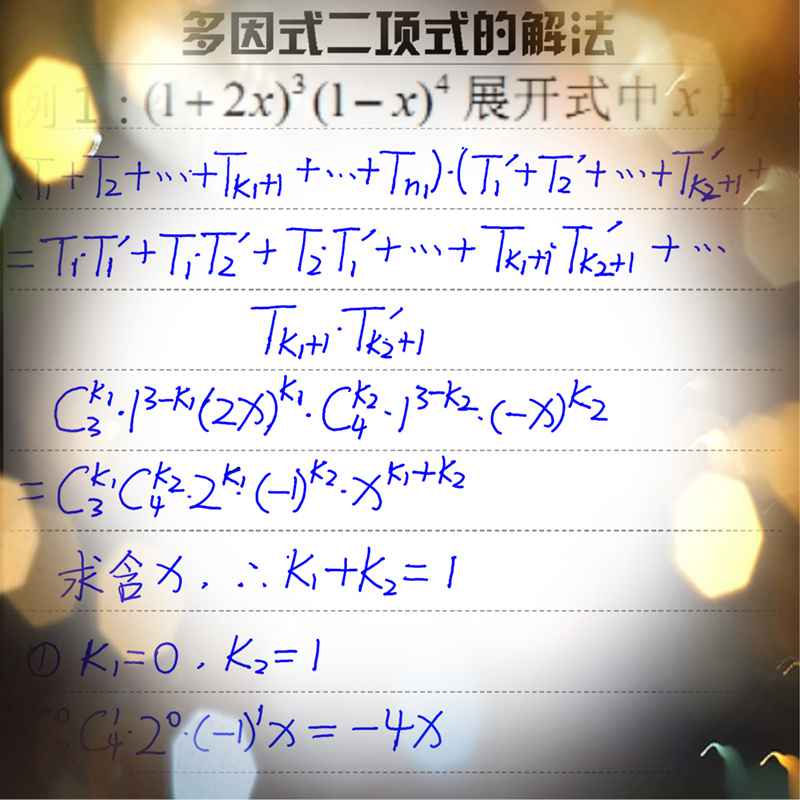 多因式二项式的解法
例1:(1+2x)³(1−x)⁴ 展开式中 x 的
(T₁+T₂+⋯+Tₖ₁₊₁+⋯+Tₙ₁)·(T₁′+T₂′+⋯+Tₖ₂₊₁′+
=T₁·T₁′+T₁·T₂′+T₂·T₁′+⋯+Tₖ₁₊₁·Tₖ₂₊₁′+⋯
Tₖ₁₊₁·Tₖ₂₊₁′
C₃^{k₁}·1^{3-k₁}(2x)^{k₁}·C₄^{k₂}·1^{3-k₂}·(-x)^{k₂}
=C₃^{k₁}C₄^{k₂}·2^{k₁}·(-1)^{k₂}·x^{k₁+k₂}
求含x,∴k₁+k₂=1
① k₁=0,k₂=1
C₄¹·2⁰·(-1)¹x=-4x